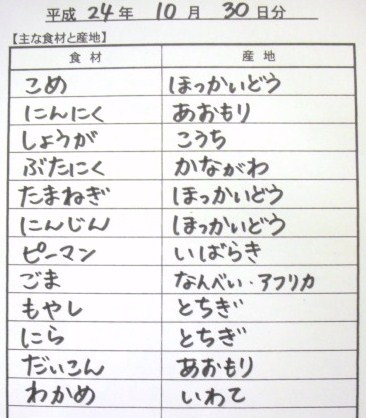 平成 24 年 10 月 30 日分
【主な食材と産地】
食材 産地
こめ ほっかいどう
にんにく あおもり
しょうが こうち
ぶたにく かながわ
たまねぎ ほっかいどう
にんじん ほっかいどう
ピーマン いばらき
ごま なんべい・アフリカ
もやし とちぎ
にら とちぎ
だいこん あおもり
わかめ いわて